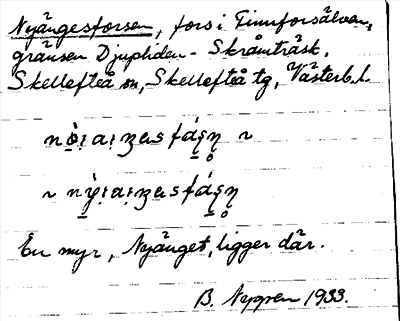 Nyängesforsen, fors i Finnforsälven,
gränsen Djupliden - Skråmträsk,
Skellefteå sn, Skellefteå tg, Västerb. l.
~
~
En myr, Nyänget, ligger där.
B. Nygren 1933.